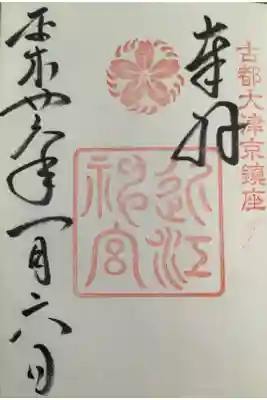 古都大津京鎮座
奉拝
近江
神宮
平成廿六年一月六日